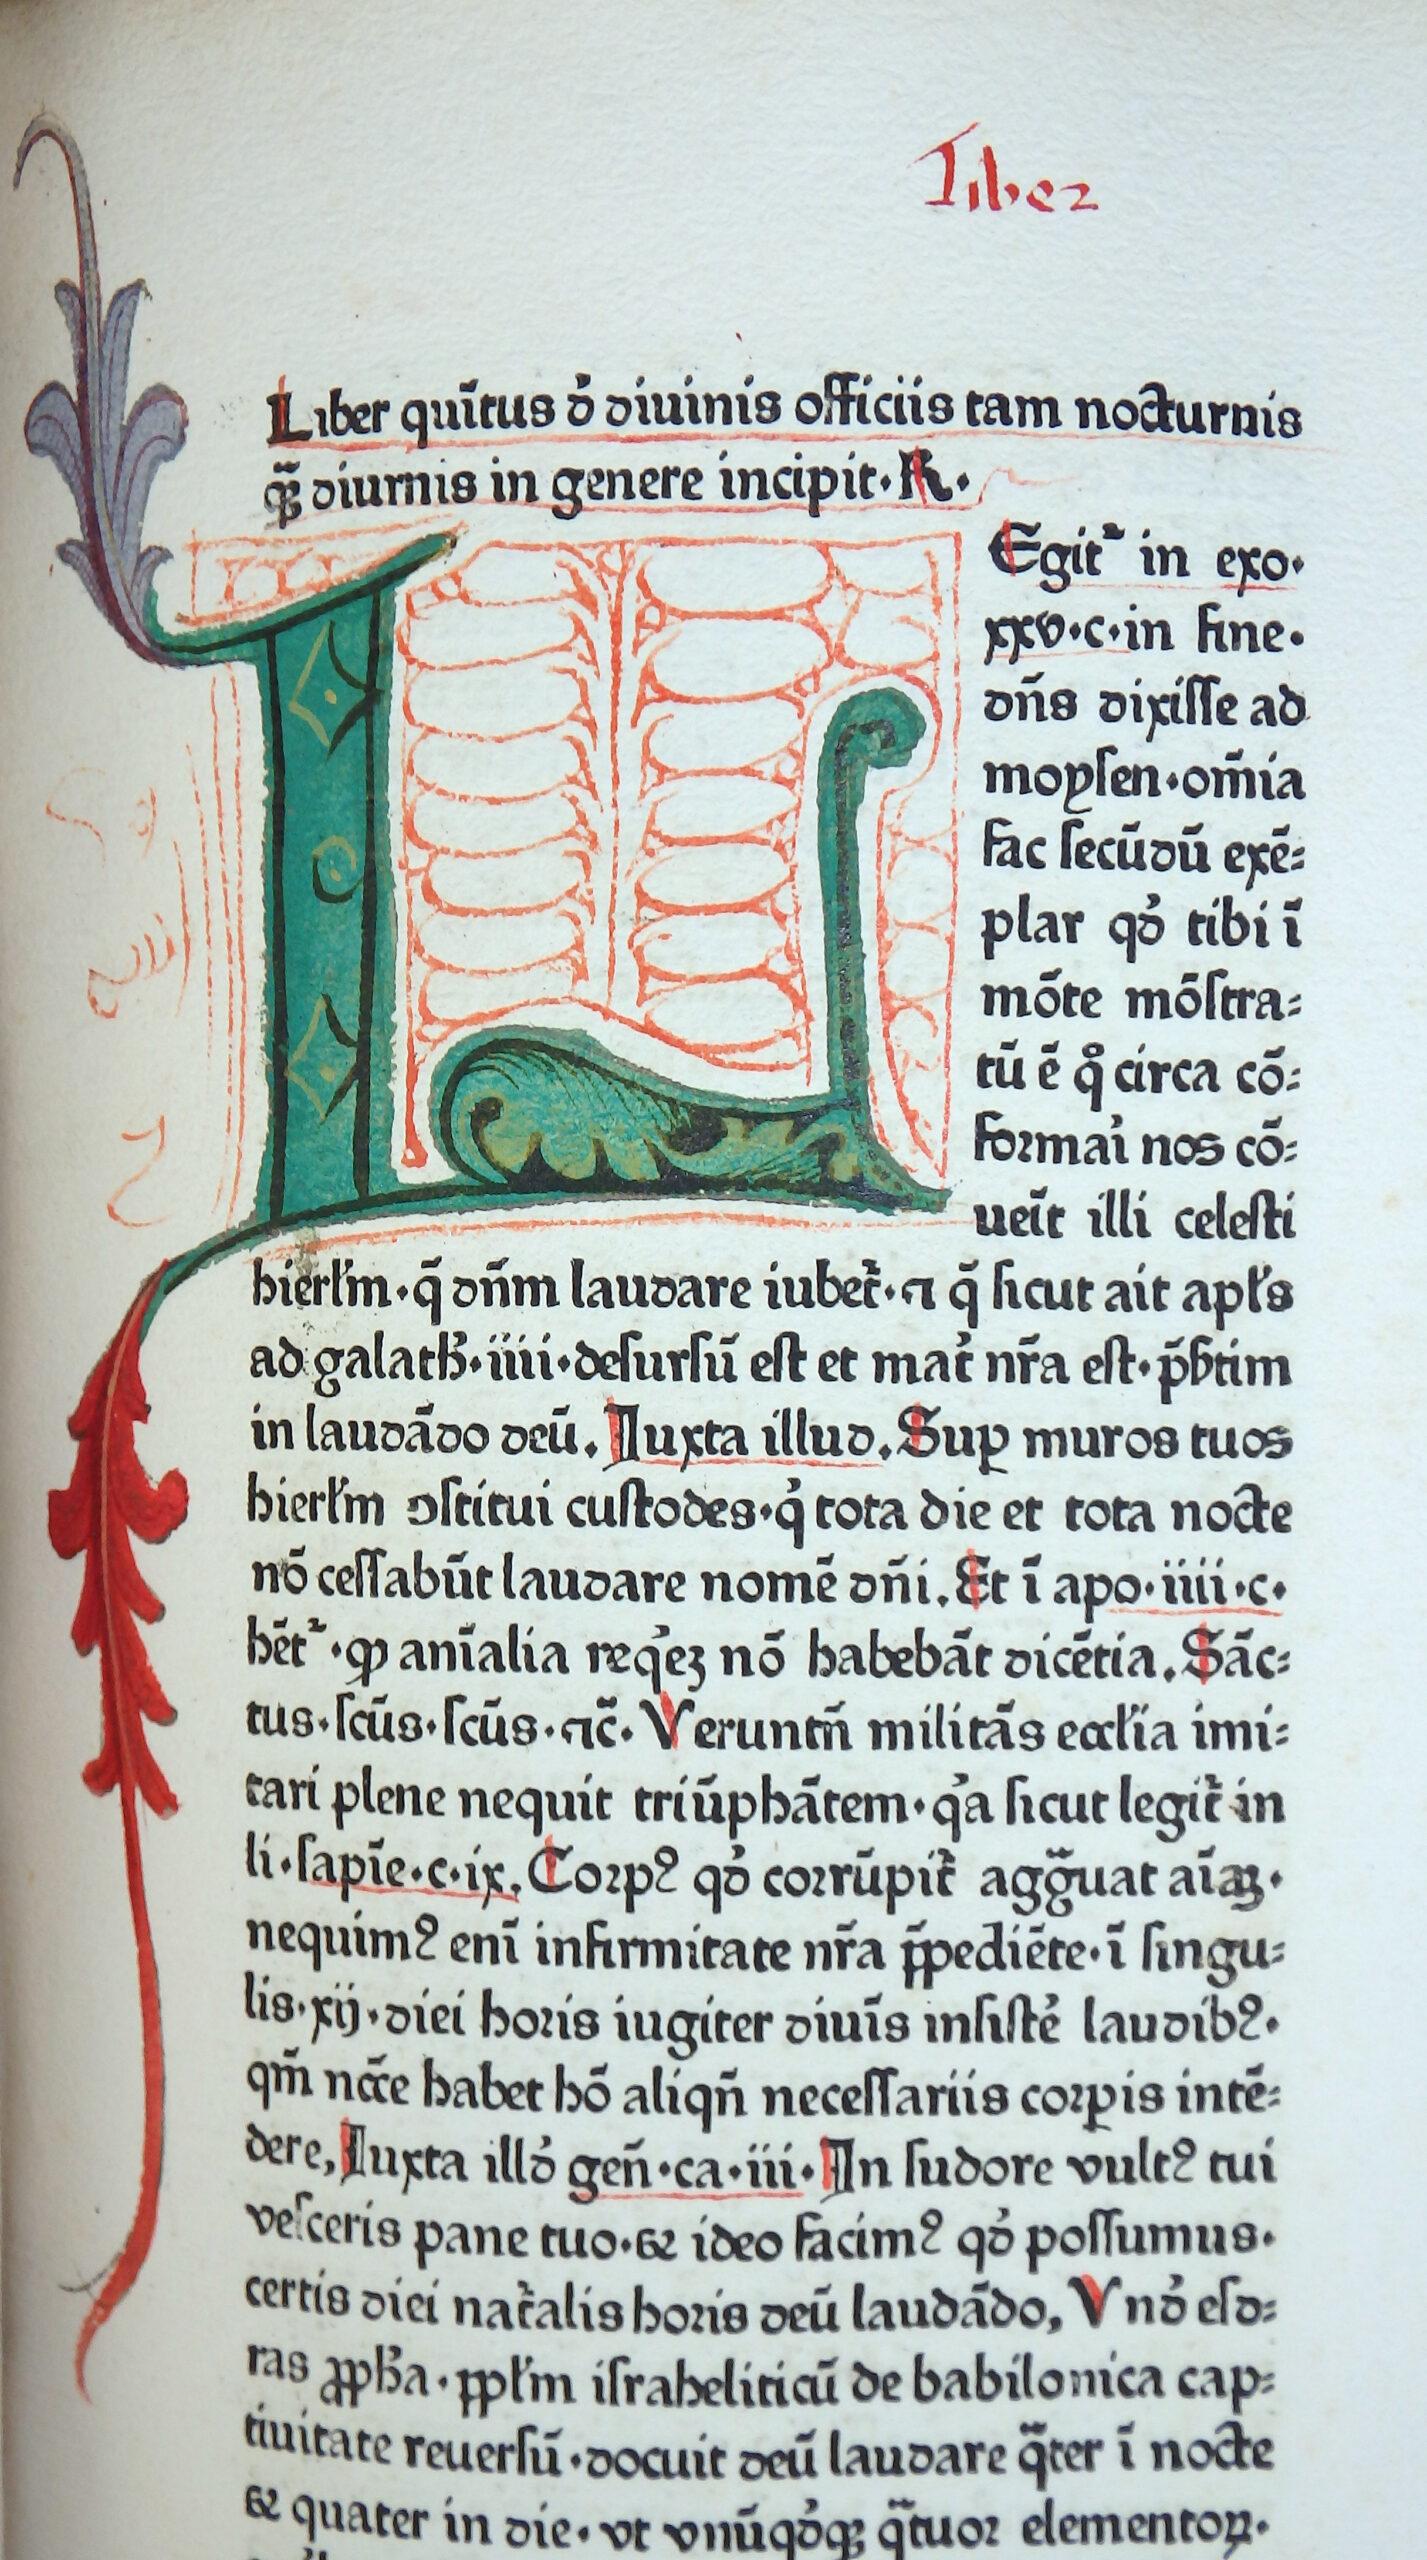 Liber
Liber quītus ď diuinis officiis tam nocturnis
qꝫ̃ diurnis in genere incipit·R·
LEgit᷑ in exo·
xxv·c·in fine·
dn̄s dixiſſe ad
moyſen·om̄ia
fac ſecūdū exē⸗
plar qď tibi ī
mōte mōſtra⸗
tū ē qͦ circa cō⸗
formaı̓ nos cō⸗
ueīt illi celeſti
hierłm·q̄ dn̄m laudare iubet᷑·⁊ q̄ ſicut ait apłs
ad galath̓·iiii·deſurſū eſt et mat̓ nr̄a eſt·p̄ẜtim
in laudādo deū. Iuxta illud. Suꝑ muros tuos
hierłm ꝯſtitui cuſtodes·q̓ tota die et tota nocte
nō ceſſabūt laudare nomē dn̄i. Et ī apo·iiii·c·
hēt᷑·ꝙ anīalia req̓eꝫ nō habebāt dicētia. Sāc⸗
tus·ſcūs·ſcūs·⁊c̄· Veruntn̄ militās eccłia imi⸗
tari plene nequit triūphātem·q̓a ſicut legit᷑ in
li·ſapīe·c·ix. Corpꝰ qď corrūpit᷑ aggᷓuat aīaꝫ·
nequimꝰ enī infirmitate nr̄a p̄pediēte·ī ſingu⸗
lis·xij·diei horis iugiter diuīs inſiſtē̓ laudibꝰ·
qm̄ nc̄c̄e habet hō aliqn̄ neceſſariis corꝑis intē⸗
dere, Iuxta illď gen̄·ca·iii· In ſudore vultꝰ tui
veſceris pane tuo·& ideo facimꝰ qď poſſumus·
certis diei nat᷑alis horis deū laudādo, Vnď eſd⸗
ras ꝓph̓a·ꝑpłm iſraheliticū de babilonica cap⸗
tiuitate reuerſū·docuit deū laudare qᷓter ī nocte
& quater in die·vt vnūqďqꝫ qᷓtuor elementoꝝ·